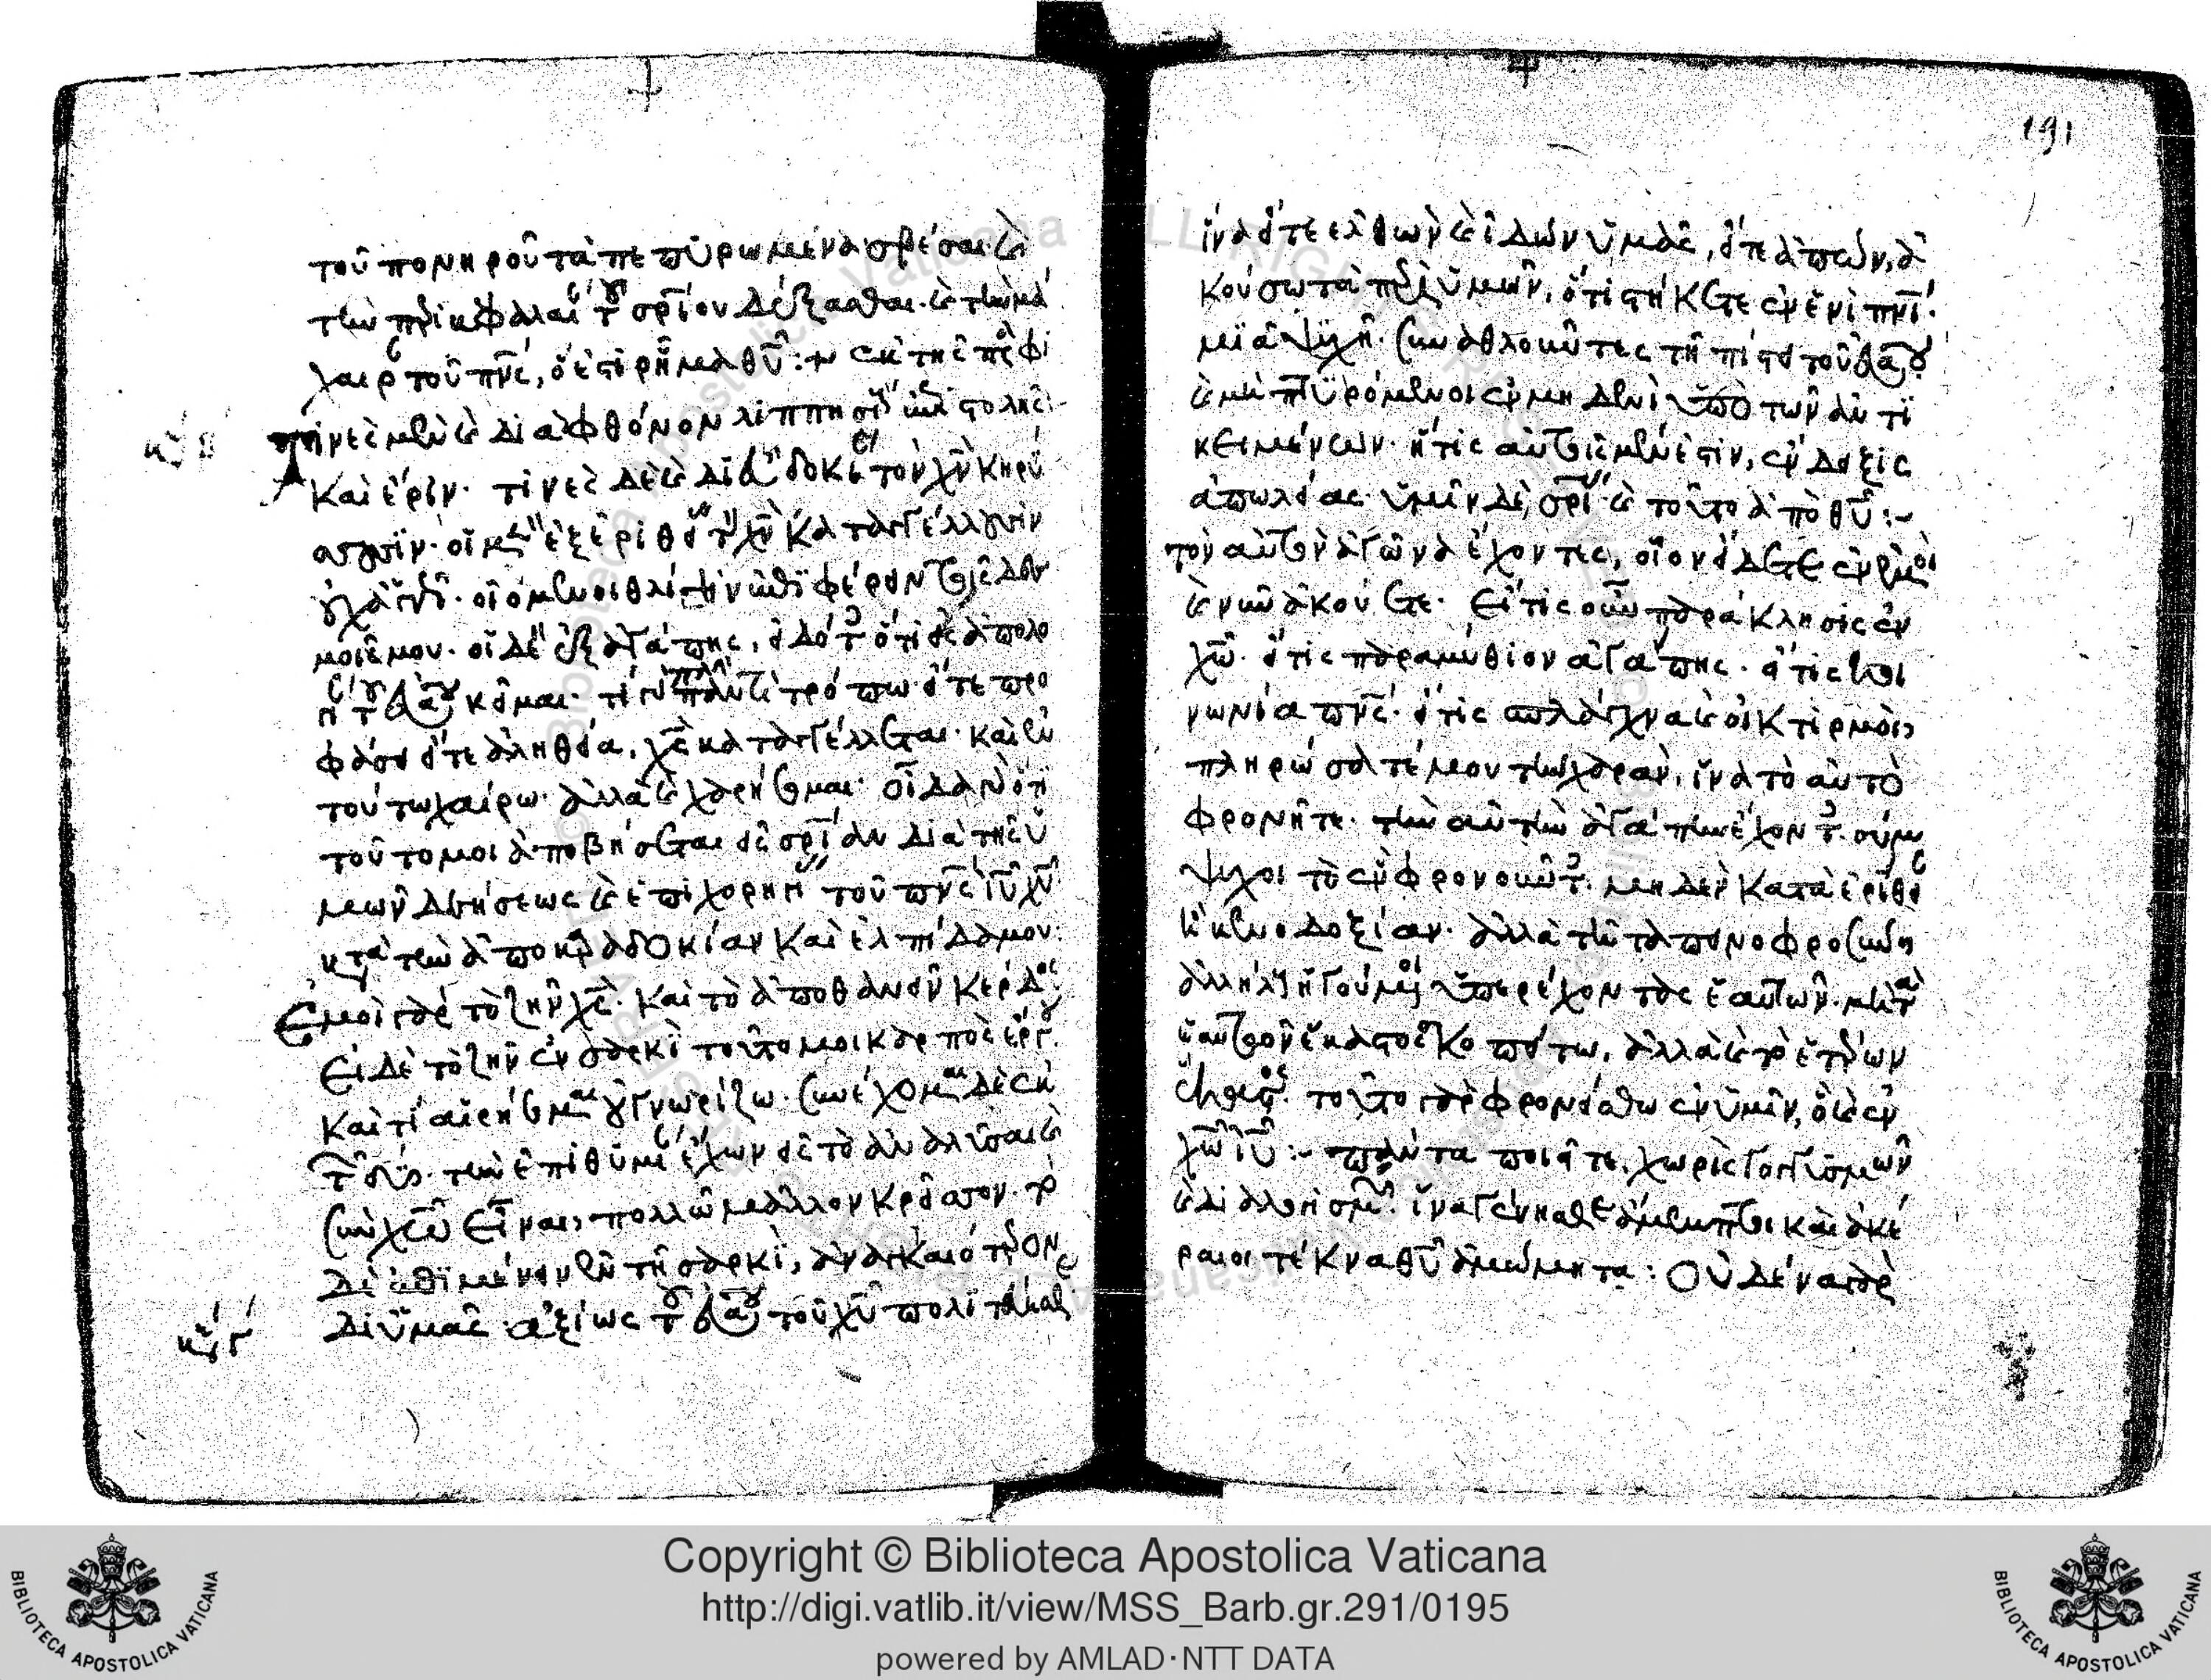 τοῦ πονηροῦ τὰ πεπυρωμένα σβέσαι· καὶ
τὴν περικεφαλαίαν τοῦ σρίου δέξασθαι· καὶ τὴν μά
χαιραν τοῦ πνς, ὅ ἐστι ῥῆμα θυ: ἐκ τῆς πρὸς φι
λιππησίους ἐπιστολῆς
τινὲς μὲν καὶ διὰ φθόνον
Καὶ ἔριν· τινὲς δὲ καὶ δι' εὐδοκίαν τὸν χν κηρύ
σσουσιν· οἱ μὲν ἐξ ἐριθείας τὸν χν καταγγέλλουσιν
οὐχ ἁγνῶς· οἰόμενοι θλίψιν ἐπιφέρειν τοῖς δε
μοῖς μου· οἱ δὲ ἐξ ἀγάπης, εἰδότες ὅτι εἰς ἀπολο
γίαν τοῦ εὐαγγελίου κεῖμαι· τί γὰρ πλὴν παντὶ τρόπω· εἴτε προ
φάσει εἴτε ἀληθεία, χς καταγγέλλεται· καὶ ἐν
τούτω χαίρω· ἀλλὰ καὶ χαρήσομαι· οἶδα γὰρ ὅτι
τοῦτο μοι ἀποβήσεται εἰς σρίαν διὰ τῆς ὑ
μῶν δεήσεως καὶ ἐπιχορηγίας τοῦ πνς ιυ χυ
κατὰ τὴν ἀποκαραδοκίαν καὶ ἐλπίδα μου·
Ἐμοὶ γὰρ τὸ ζῆν χς· καὶ τὸ ἀποθανεῖν κέρδος·
Εἰ δὲ τὸ ζῆν ἐν σαρκὶ τοῦτο μοι καρπὸς ἔργου·
Καὶ τί αἱρήσομαι οὐ γνωρίζω· συνέχομαι δὲ ἐκ
τῶν δύο· τὴν ἐπιθυμίαν ἔχων εἰς τὸ ἀναλῦσαι καὶ
σὺν χω εἶναι, πολλῶ μᾶλλον κρεῖσσον· τὸ
δὲ ἐπιμένειν ἐν τῆ σαρκὶ, ἀναγκαιότερον
δι' ὑμᾶς
κε κγ
ἀξίως τοῦ εὐαγγελίου τοῦ χυ πολιτεύεσθε
191
ἵνα εἴτε ἐλθὼν καὶ ἰδὼν ὑμᾶς, εἴτε ἀπὼν, ἀ
κούσω τὰ περὶ ὑμῶν, ὅτι στήκετε ἐν ἑνὶ πνι·
μιᾶ ψυχῆ· συναθλοῦντες τῆ πίστει τοῦ εὐαγγελίου
καὶ μὴ πτυρόμενοι ἐν μηδενὶ ὑπὸ τῶν ἀντι
κειμένων· ἥτις αὐτοῖς μὲν ἐστιν, ἔνδειξις
ἀπωλείας· ὑμῖν δὲ, σρίας· καὶ τοῦτο ἀπὸ θυ:
τὸν αὐτὸν ἀγῶνα ἔχοντες, οἷον εἴδετε ἐν ἐμοὶ
καὶ νῦν ἀκούετε· Εἴ τις οὖν παράκλησις ἐν
χω· εἴ τις παραμύθιον ἀγάπης· εἴ τις κοι
νωνία πνς· εἴ τις σπλάγχνα καὶ οἰκτιρμοὶ,
πληρώσατέ μου τὴν χαρὰν, ἵνα τὸ αὐτὸ
φρονῆτε· τὴν αὐτὴν ἀγάπην ἔχοντες· σύμ
ψυχοι τὸ ἓν φρονοῦντες· μηδὲν κατὰ ἐριθείαν
ἢ κενοδοξίαν· ἀλλὰ τῆ ταπεινοφροσύνη
ἀλλήλους ἡγούμενοι ὑπερέχοντας ἑαυτῶν· μὴ τὰ
ἑαυτῶν ἕκαστος σκοπείτω, ἀλλὰ καὶ τὰ ἑτέρων
ἕκαστος· τοῦτο γὰρ φρονείσθω ἐν ὑμῖν, ὃ καὶ ἐν
χω ιυ: πάντα ποιεῖτε, χωρὶς γογγυσμῶν
καὶ διαλογισμῶν· ἵνα γένησθε ἄμεμπτοι καὶ ἀκέ
ραιοι τέκνα θυ ἀμώμητα: Οὐδένα γὰρ
Copyright © Biblioteca Apostolica Vaticana
http://digi.vatlib.it/view/MSS_Barb.gr.291/0195
powered by AMLAD·NTT DATA
BIBLIOTECA APOSTOLICA VATICANA
BIBLIOTECA APOSTOLICA VATICANA